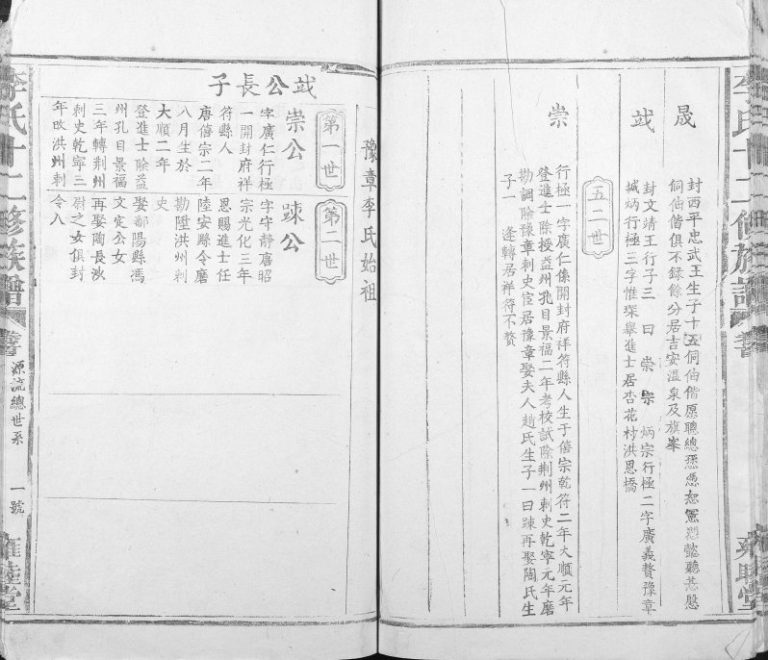 晟
封西平忠武王生子十五侗伷偕原聰總愻憑恕憲愬懿聽惎慇
侗伷偕俱不録餘分居吉安溫泉及旗峯
竑
封文靖王行子三曰崇岽炳宗行極二字廣義贅豫章
撼炳行極三字惟琛舉進士居杏花村洪恩橋
五二世
崇
行極一字廣仁係開封府祥符縣人生于僖宗乾符二年大順元年
登進士除授益州孔目景福二年考校試除荆州刺史乾寧元年磨
勘調除豫章刺史宦居豫章娶夫人趙氏生子一曰踈再娶陶氏生
子一 逢轉居祥符不贅
李氏十二修族譜
豫章李氏始祖
竑公長子
第一世
崇公
字廣仁行極
一開封府祥
符縣人
唐僖宗二年
八月生於
大順二年
登進士除益
州孔目景福
三年轉荆州
刺史乾寧三
年改洪州刺
第二世
踈公
字守靜唐昭
宗光化三年
恩賜進士任
陸安縣令磨
勘陞洪州刺
史
娶鄱陽縣馮
文定公女
再娶陶長沙
尉之女俱封
令人
李氏十二修族譜
源流總世系
一號
雍睦堂